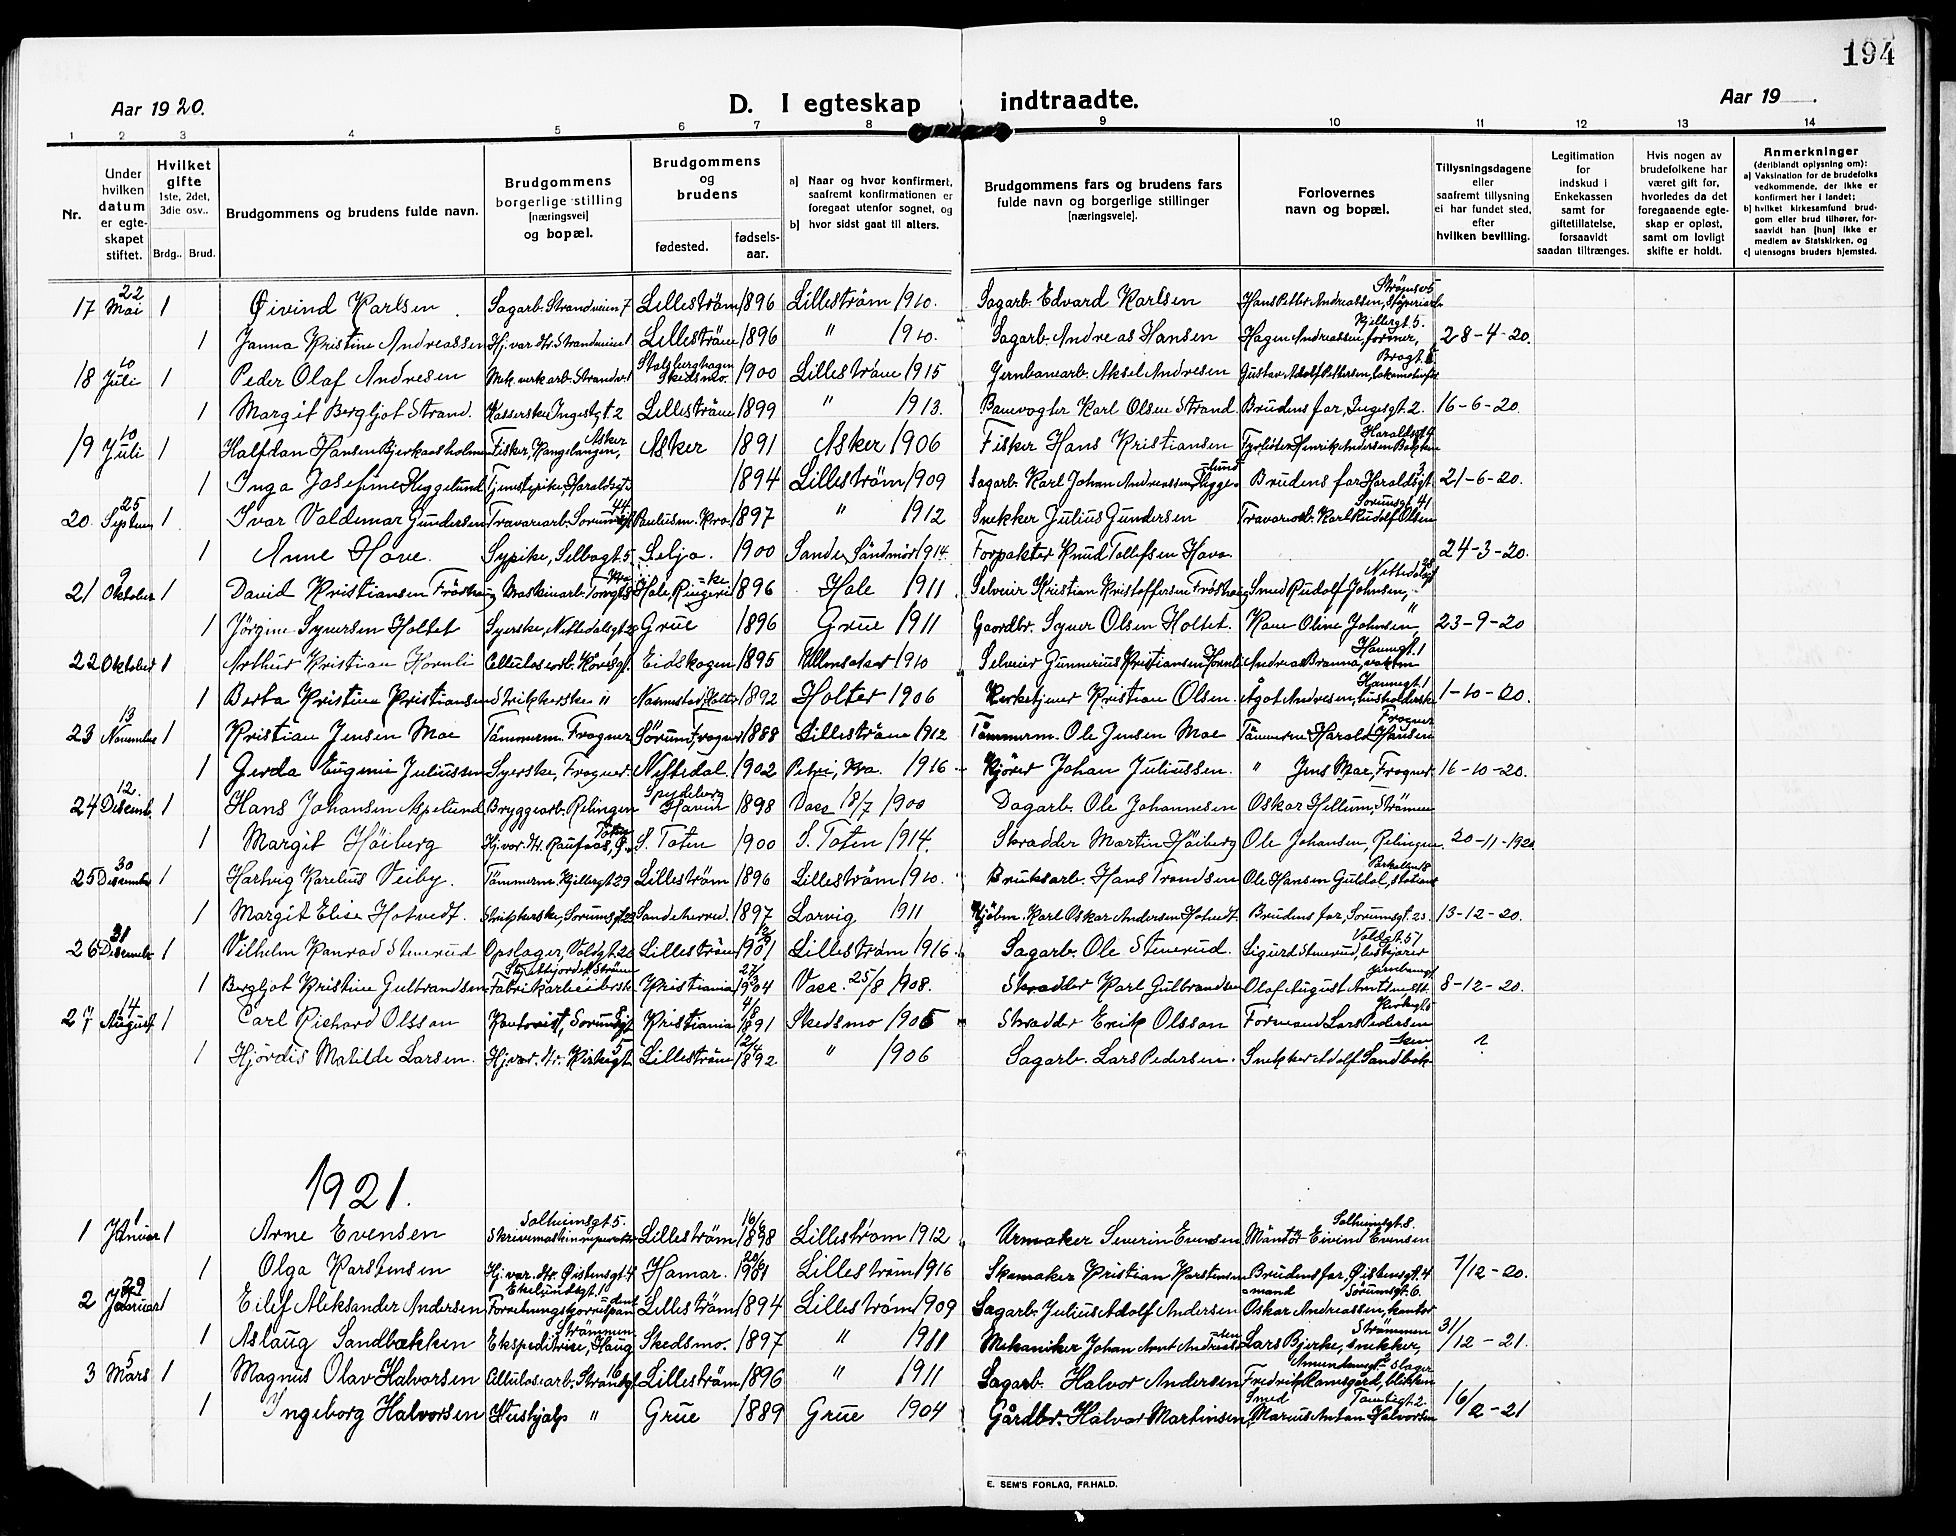 194
Aar 1920.
D. I egteskap indtraadte.
Aar 19 .
1 2 3 4 5 6 7 8 9 10 11 12 13 14
Nr.
Under hvilken datum er egte-skapet stiftet.
Hvilket gifte 1ste, 2det, 3die osv..
Brdg.. Brud.
Brudgommens og brudens fulde navn.
Brudgommens borgerlige stilling [næringsvei] og bopæl.
Brudgommens og brudens
fødested.
fødsels-aar.
a) Naar og hvor konfirmert, saafremt konfirmationen er foregaat utenfor sognet, og
b) hvor sidst gaat til alters.
Brudgommens fars og brudens fars fulde navn og borgerlige stillinger [næringsveie].
Forlovernes navn og bopæl.
Tillysningsdagene eller saafremt tillysning ei har fundet sted, efter hvilken bevilling.
Legitimation for indskud i Enkekassen samt for giftetillatelse, forsaavidt saadan tiltrænges.
Hvis nogen av brudefolkene har været gift før, hvorledes da det foregaaende egte-skap er opløst, samt om lovlig skifte er holdt.
Anmerkninger (deriblandt oplysning om): a) Vaksination for de brudefolks vedkommende, der ikke er konfirmert her i landet; b) hvilket kirkesamfund brud-gom eller brud tilhører, for-saavidt han [hun] ikke er medlem av Statskirken, og c) utensogns bruders hjemsted.
17 22 Mai 1 Øivind Karlsen Sagarb. Strandveien 7 Lillestrøm 1896 Lillestrøm 1910. Sagarb. Edvard Karlsen Hans Petter Andreassen,
1 Janna Kristine Andreassen Hj. var. Str. Strandveien 1 Lillestrøm 1896 " 1910. Sagarb. Andreas Hansen Hagen Andreassen, former, Kjellergt. 5. 28-4-20.
18 10 Juli 1 Peder Olaf Andresen Mek. verk.arb. Strandv. 1 Stalsberghagen Skedsmo. 1900 Lillestrøm 1915 Jernbanearb. Aksel Andresen Gustav Adolf Pettersen, lokomotivf.
1 Margit Bergljot Strand. Kasserske Ingesgt. 2 Lillestrøm 1899 " 1913. Banevogter Karl Olsen Strand Brudens far, Ingesgt. 2. 16-6-20.
19 10 Juli 1 Halfdan Hansen Bjerkaasholmen Fisker, Kangelangen, Asker Asker 1891 Asker 1906 Fisker Hans Kristiansen Fyrbøter Henrik Andersen
1 Inga Josefine Heggelund Tjenestepike, Haraldsgt. 3 1894 Lillestrøm 1909 Sagarb. Karl Johan Andreassen Heggelund Brudens far Haraldsgt. 3 21-6-20.
20. 25 Septem 1 Ivar Valdemar Gundersen Travarearb. Sørumsgt. 44 Paulusm. Kra. 1897 " 1912 Snekker Julius Gundersen Travarearb. Karl Rudolf Olsen Sørumsgt. 41
1 Anne Hove. Sypike, Selbogt. 5 Selja. 1900 Sande, Søndmør 1914. Forpakter Knud Tollefsen Hove 24-3-20.
21 9 Oktober 1 David Kristiansen Frøshaug Maskinarb. Torvgt. 8 Hole, Ringerike 1896 Hole 1911 Selveier Kristian Kristoffersen Frøshaug Smed Rudolf Johnsen, Nittedalsgt.
1 Jørgine Syversen Holtet Syerske, Nittedalsgt. 28 Grue 1896 Grue 1911 Gaardbr. Syver Olsen Holtet. Kone Oline Johnsen " 23-9-20
22 Oktober 1 Arthur Kristian Hornli Cellulosearb. Eidskogen 1895 Ullensaker 1910 Selveier Gunnerius Kristiansen Hornli Andreas Branna, Hannegt. 1
1 Berta Kristine Kristiansen Strikkerske " Nannestad, Holter 1892 Holter 1906 Kirketjener Kristian Olsen. Ågot Andresen, husholderske Hannegt. 1 1-10-20.
23 13 November 1 Kristian Jensen Moe Tømmerm. Frogner Sørum, Frogner 1888 Lillestrøm 1912 Tømmerm. Ole Jensen Moe Tømmerm. Harald Hansen Frogner
1 Gerda Eugenie Juliussen Syerske, Frogner. Nittedal. 1902 Petri, Kra. 1916 Kjører Johan Juliussen. " Jens Moe, Frogner 16-10-20.
24 12. Desemb. 1 Hans Johansen Aspelund Bryggearb. Rælingen Spydeberg Hovin 1898 Vacc 18/7 1900 Dagarb. Ole Johannesen Oskar Hellum, Strømmen
1 Margit Høiberg Hj. var. Str. Raufoss, S. Toten S. Toten 1900 S. Toten 1914. Skrædder Martin Høiberg Ole Johansen, Rælingen. 20-11-1920
25 30 Desember 1 Hartvig Karelius Veiby. Tømmerm. Kjellergt 29 Lillestrøm 1896 Lillestrøm 1910. Bruksarb. Hans Trondsen Ole Hansen Guldal,
1 Margit Elise Hotvedt. Strikkerske, Sørumsgt. 23 Sandeherred. 1897 Larvig 1911 Kjøbm. Karl Oskar Andersen Hotvedt. Brudens far, Sørumsgt. 23. 13-12-20.
26 31 Desember 1 Vilhelm Konrad Stenerud Opslager, Voldgt. 26 Lillestrøm 1901 Lillestrøm 1916. Sagarb. Ole Stenerud. Sigurd Stenerud, Voldgt. 51
1 Bergljot Kristine Gulbrandsen Fabrikarbeiderske Kristiania 27/3 1904 Vacc. 25/8 1908. Skrædder Karl Gulbrandsen Olaf August 8-12-20.
27 14 August 1 Carl Richard Olsson Kontorist, Sørumsgt. Kristiania 4/8 1891 Skedsmo 1905 Skrædder Erik Olsson Formand Lars Pedersen Kirkegt. 5
1 Hjördis Matilde Larsen. Hj. var. Str. Kirkegt. 5 Lillestrøm 2/4 1892 " 1906 Sagarb. Lars Pedersen. Snekker Adolf Sandbækken ?
1921.
1 1 Januar 1 Arne Evensen Solheimsgt. 5. Skrivemaskinreparatør Lillestrøm 16/6 1898 Lillestrøm 1912 Urmaker Severin Evensen Montør Eivind Evensen Solheimsgt. 8.
1 Olga Karstensen Hj. var. Str. Øistensgt. 4 Hamar. 20/6 1901 Lillestrøm 1916 Skomaker Kristian Karstensen Brudens far, Øistensgt. 4 7/12-20.
2 29 Januar 1 Eilef Aleksander Andersen Ekelundsgt. 1 Forretningskorrespondent Lillestrøm 1894 Lillestrøm 1909 Sagarb. Julius Adolf Andersen Oskar Andreassen, kontormand Sørumsgt. 6.
1 Aslaug Sandbækken Ekspeditrise, Haug Strømmen Skedsmo. 1897 " 1911 Mekaniker Johan Arnt Andreassen Lars Bjerke, snekker, Strømmen 31/12-21.
3 5 Mars 1 Magnus Olav Halvorsen Cellulosearb. Strandgt. 16 Lillestrøm 1896 " 1911 Sagarb. Halvor Andersen Fredrik Ramsgård, blikkenslager
1 Ingeborg Halvorsen Hushjælp " Grue 1889 Grue 1904 Gårdbr. Halvor Martinsen Smed Marius Anton Halvorsen Tomtegt. 2. 16/2-21
E. SEM'S FORLAG, FR.HALD.